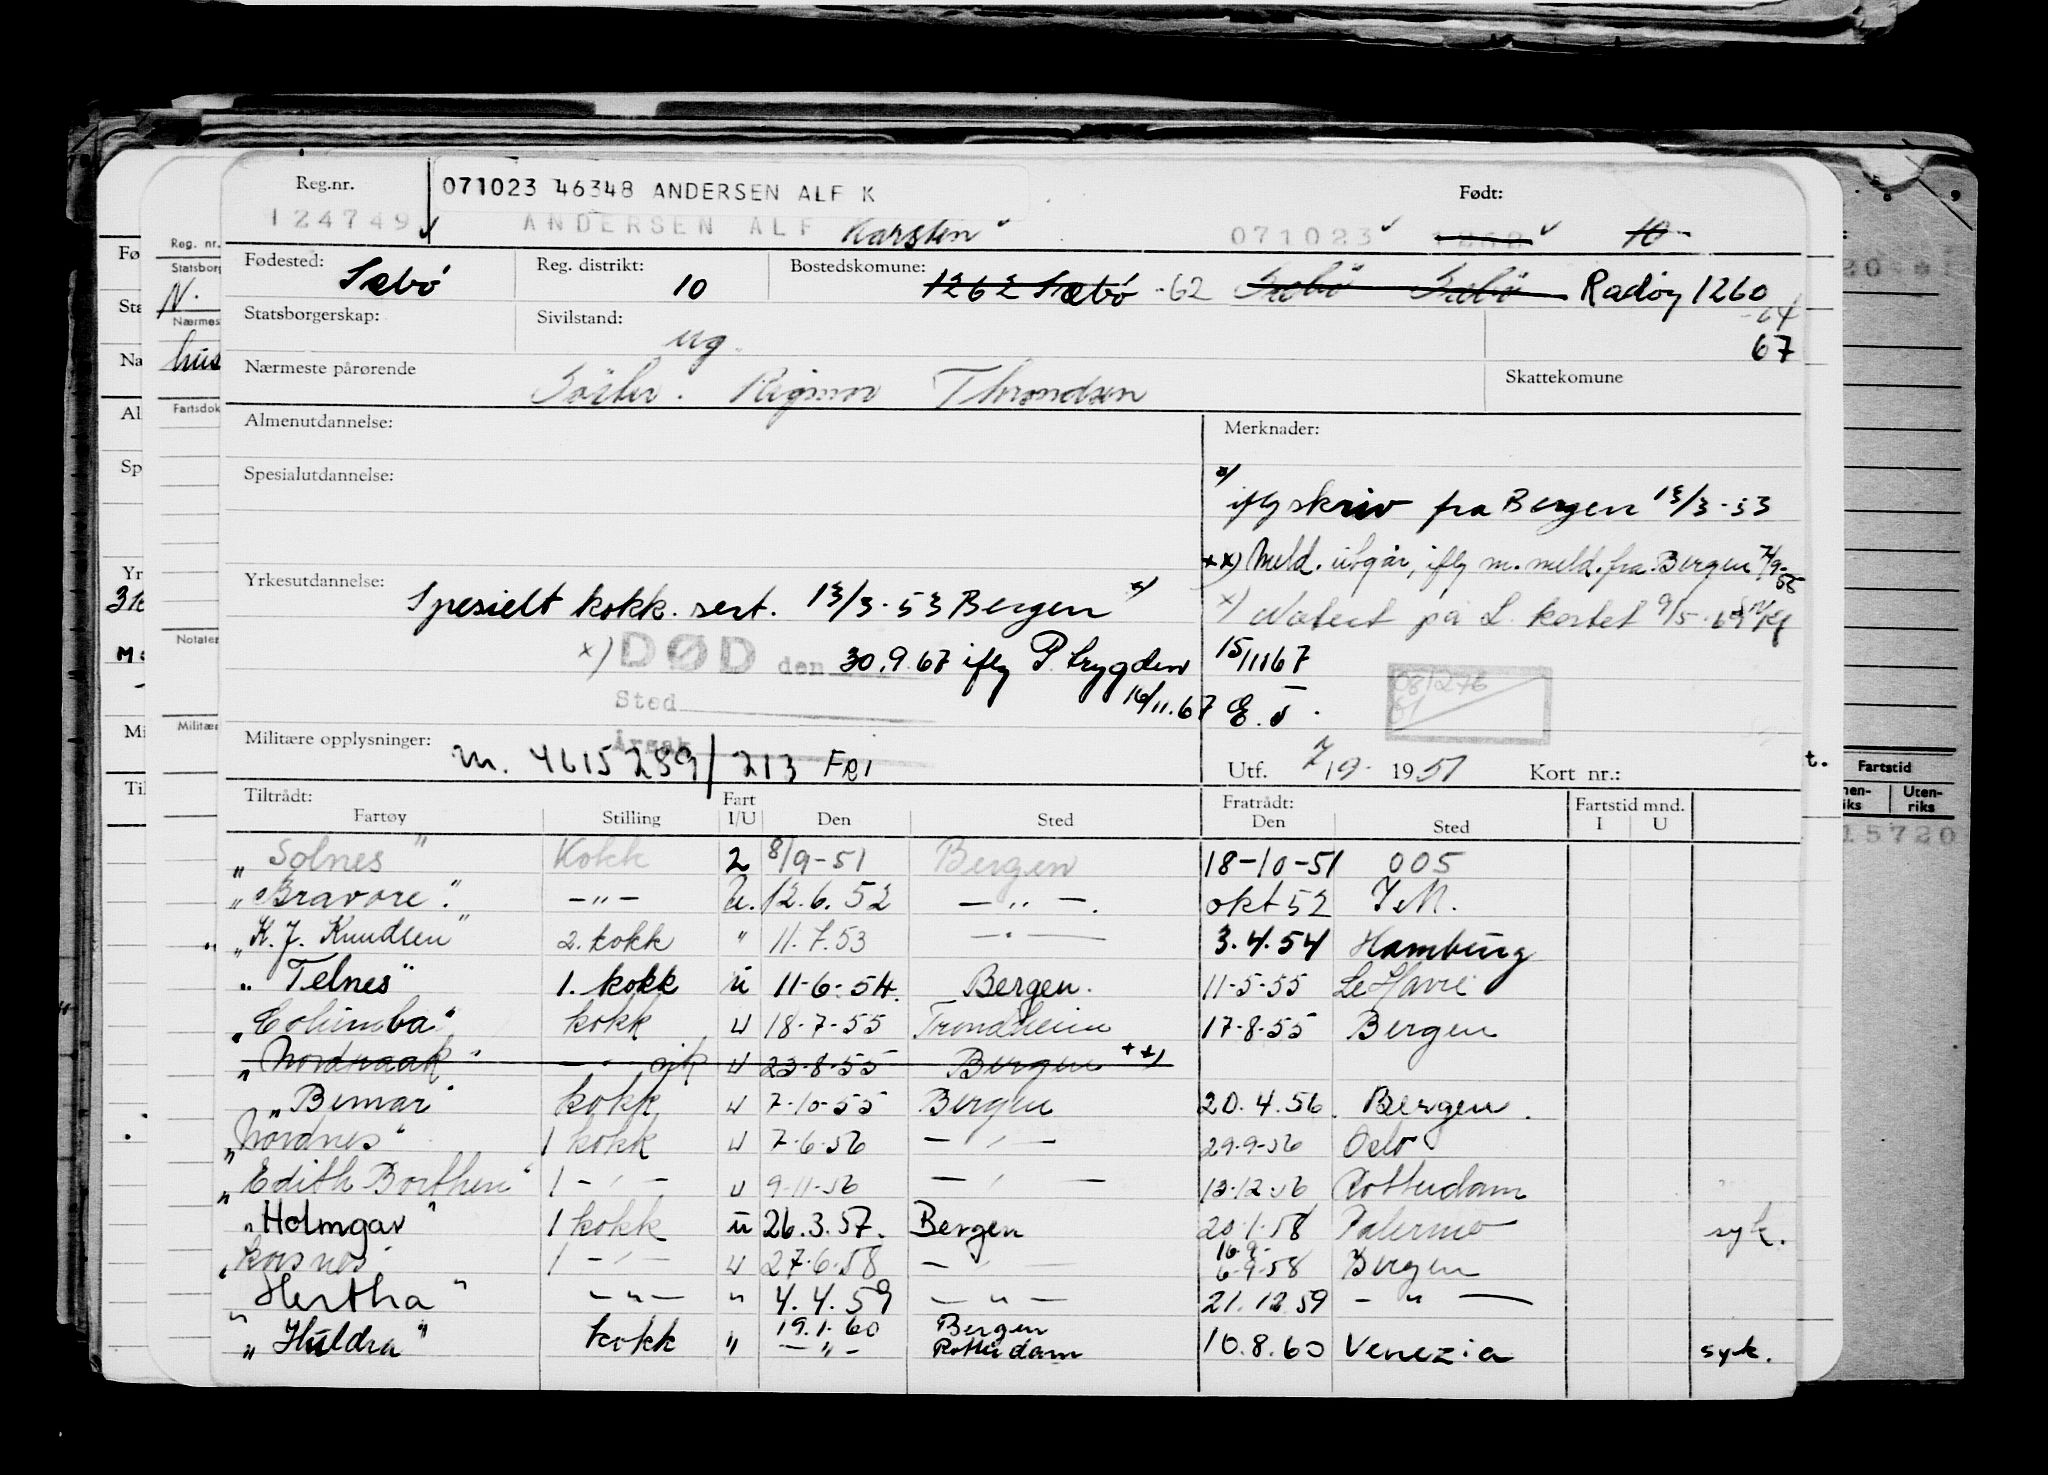 Reg.nr. 071023 46348 ANDERSEN ALF K Født:
124749 ANDERSEN ALF Karsten 071023 1262 10
Fødested: Sæbö Reg. distrikt: 10 Bostedskomune: 1262 Sæbö -62 Sæbö Sæbö Radöy 1260
-64
Statsborgerskap: Sivilstand: ug. 67
Nærmeste pårørende Söster. Rigmor Throndsen Skattekomune
Almenutdannelse: Merknader:
Spesialutdannelse:
x) iflg skriv fra Bergen 13/3-53
xx) Meld. utgår, iflg m. meld. fra Bergen 7/9-55
Yrkesutdannelse: Spesielt kokk. sert. 13/3-53 Bergen x)
x) Notert på L. kortet 9/5-69
x) DØD den 30.9.67 iflg P. trygden 15/1167
Sted 16/11.67 E. J.
081276
Årsak
Militære opplysninger: m. 4615289/213 FRI Utf. 7/9- 1951 Kort nr.:
Tiltrådt: Fart Fratrådt: Fartstid mnd.
Fartøy Stilling I/U Den Sted Den Sted I U
"Solnes" Kokk 2 8/9-51 Bergen 18-10-51 005
"Bravore". -"- U. 12.6.52 -"-. okt 52 I.M.
"K.J. Knudsen" 2. kokk " 11.7.53 -"- 3.4.54 Hamburg
"Telnes" 1. kokk u 11-6-54. Bergen. 11-5-55 Le Havre
"Columba" kokk u 18-7-55 Trondheim 17-8-55 Bergen
"Nordraak" -"- u 23-8-55 Bergen xx)
"Bemar" kokk u 7-10-55 Bergen 20.4.56. Bergen.
"Nordnes" 1 kokk u 7-6-56 -"- 29-9-56 Oslo
"Edith Borthen" 1 -"- u 9-11-56 -"- 13-12-56 Rotterdam
"Holmgar" 1 kokk u 26.3.57. Bergen 20-1-58 Palermo syk.
"Korsnes" 1 -"- u 27-6-58 -"- 16-9- 6-9-58 Bergen
"Hertha" -"- " 4.4.59 -"- 21.12.59 -"-
"Huldra" kokk " 19.1.60 Bergen
-"- Rotterdam 10.8.60 Venezia syk.
Reg. nr.
Statsborg
N.
Nærmes
hus
Fartsdok
Notater
Militær
Fø
Sta
Na
Al
Sp
Yr
Mi
Til
t.
Fartstid
Uten-
riks
15720